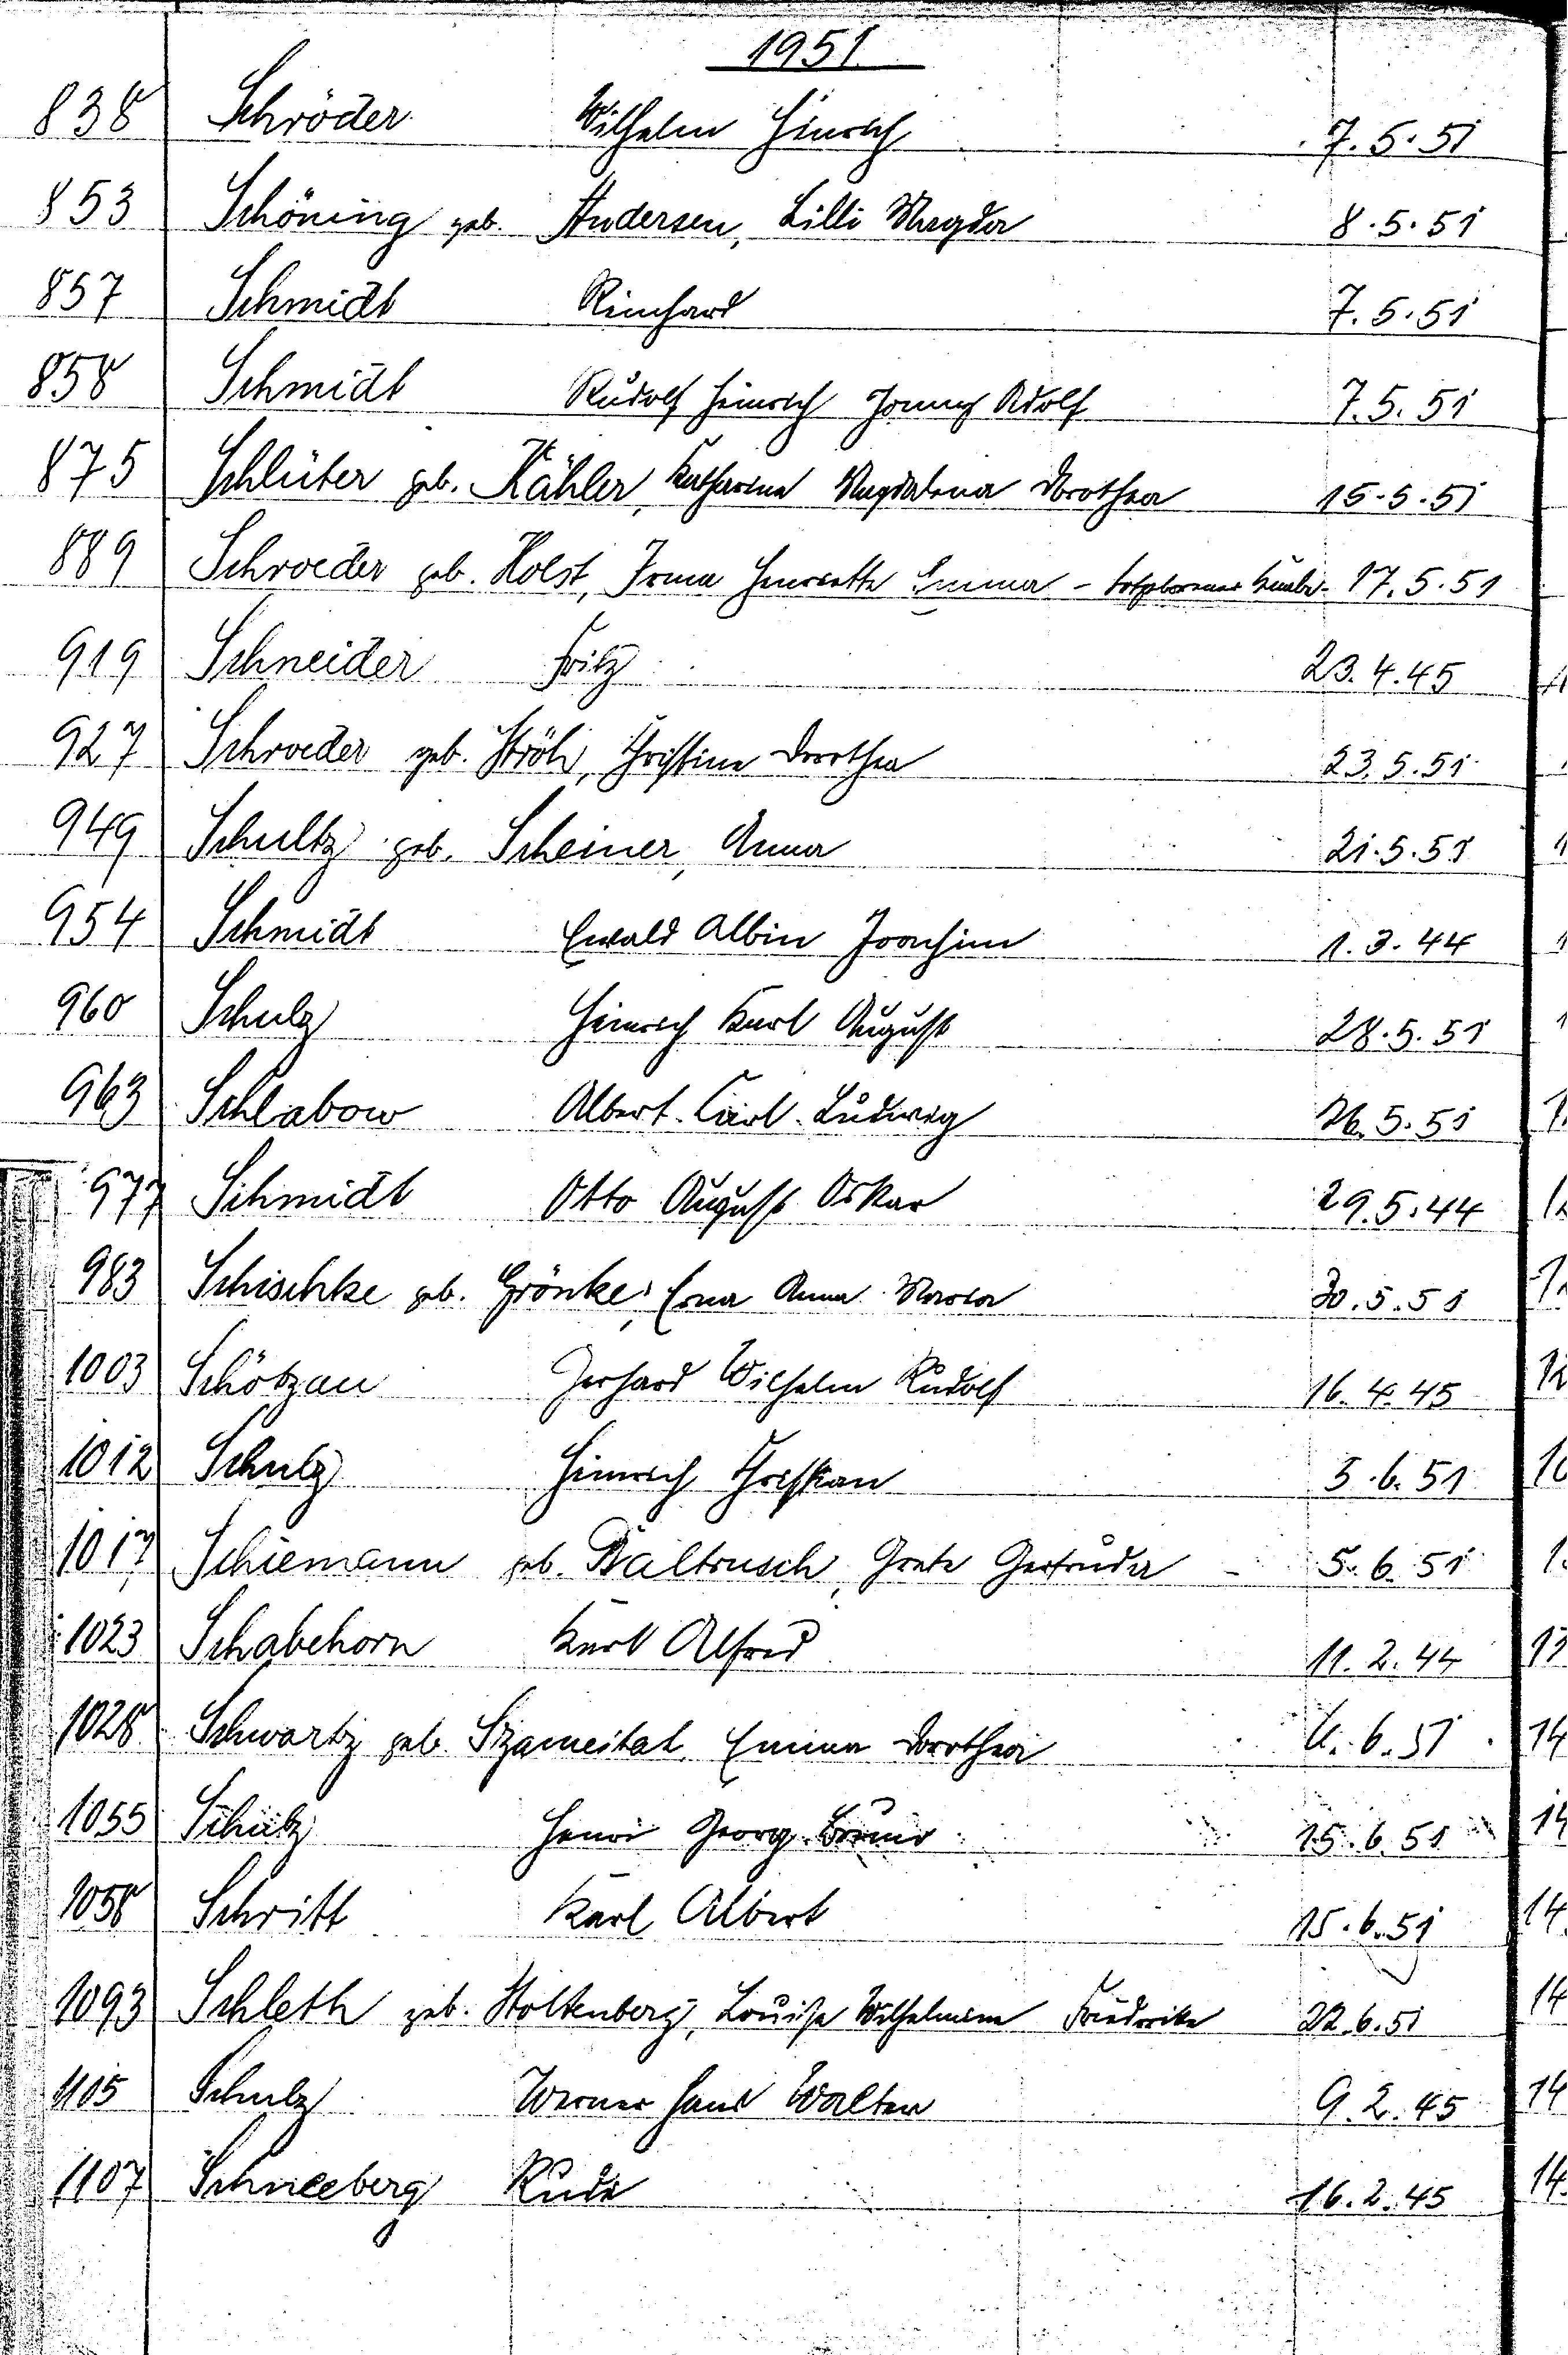 1951.
838 Schröder Wilhelm Hinrich 7.5.51
853 Schöning geb. Andersen, Lilli Magda 8.5.51
857 Schmidt Reinhard 7.5.51
858 Schmidt Rudolf Heinrich Adolf 7.5.51
875 Schlüter geb. Kähler, Katharina Magdalena Dorothea 15.5.51
889 Schroeder geb. Holst, Irma Henriette Emma - totgeborener Knabe - 17.5.51
919 Schneider Fritz 23.4.45
927 Schroeder geb. Ströh, Christine Dorothea 23.5.51
949 Schultz geb. Scheiner, Anna 21.5.51
954 Schmidt Ewald Albin Joachim 1.3.44
960 Schulz Heinrich Karl August 28.5.51
963 Schlabow Albert Carl Ludwig 26.5.51
977 Schmidt Otto August Oskar 29.5.44
983 Schischke geb. Grönke, Erna Anna Maria 30.5.51
1003 Schötzau Gerhard Wilhelm Rudolf 16.4.45
1012 Schulz Hinrich Christian 3.6.51
1017 Schiemann geb. Baltrusch, Grete Gertruda - 5.6.51
1023 Schabehorn Kurt Alfred 11.2.44
1028 Schwartz geb. Szameitat, Emma Dorothea 6.51
1055 Schulz Henri Georg Bruno 15.6.51
1058 Schritt Karl Albert 15.6.51
1093 Schleth geb. Stoltenberg, Louise Wilhelmine Friederike 22.6.51
1105 Schulz Werner Hans Walter 9.2.45
1107 Schneeberg Rudi 16.2.45